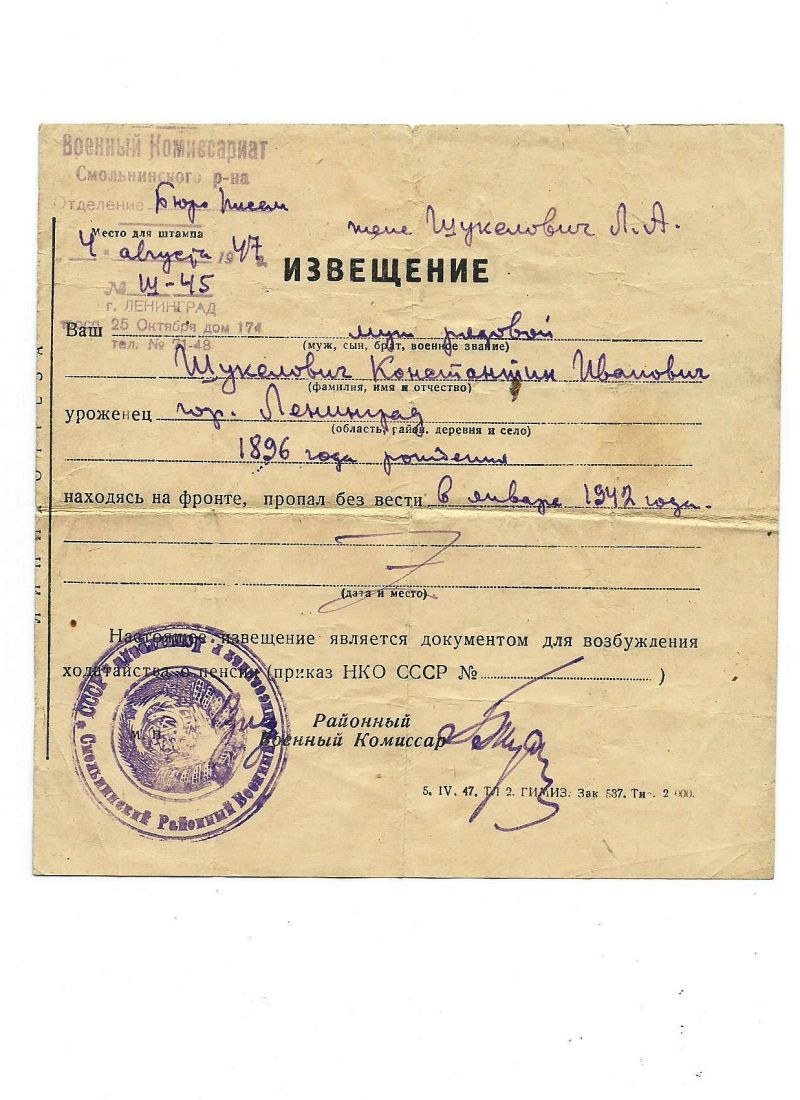 Военный Комиссариат
Смольнинского р-на
Отделение Бюро писем
Место для штампа
4 августа 1947 г.
жене Щукелович Л. А.
№ Щ-45
ИЗВЕЩЕНИЕ
г. ЛЕНИНГРАД
просп. 25 Октября дом 174
тел. № 71-48
Ваш муж рядовой
(муж, сын, брат, военное звание)
Щукелович Константин Иванович
(фамилия, имя и отчество)
уроженец гор. Ленинград
(область, район, деревня и село)
1896 года рождения
находясь на фронте, пропал без вести в январе 1942 года.
(дата и место)
Настоящее извещение является документом для возбуждения
ходатайства о пенсии (приказ НКО СССР № )
м. п.
Районный
Военный Комиссар
СССР
Смольнинский Районный Военный
5. IV. 47. ТЛ 2. ГИМИЗ. Зак 537. Тир. 2 000.